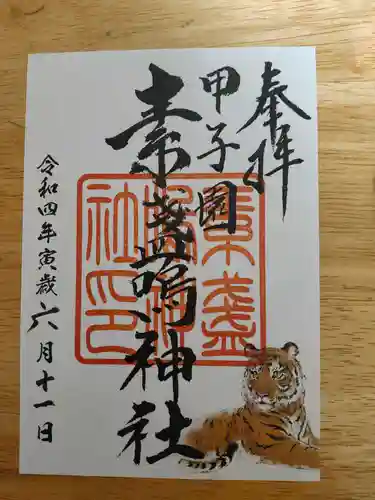 奉拝
甲子園
素盞嗚神社
令和四年寅歳六月十一日
素盞
嗚神
社印